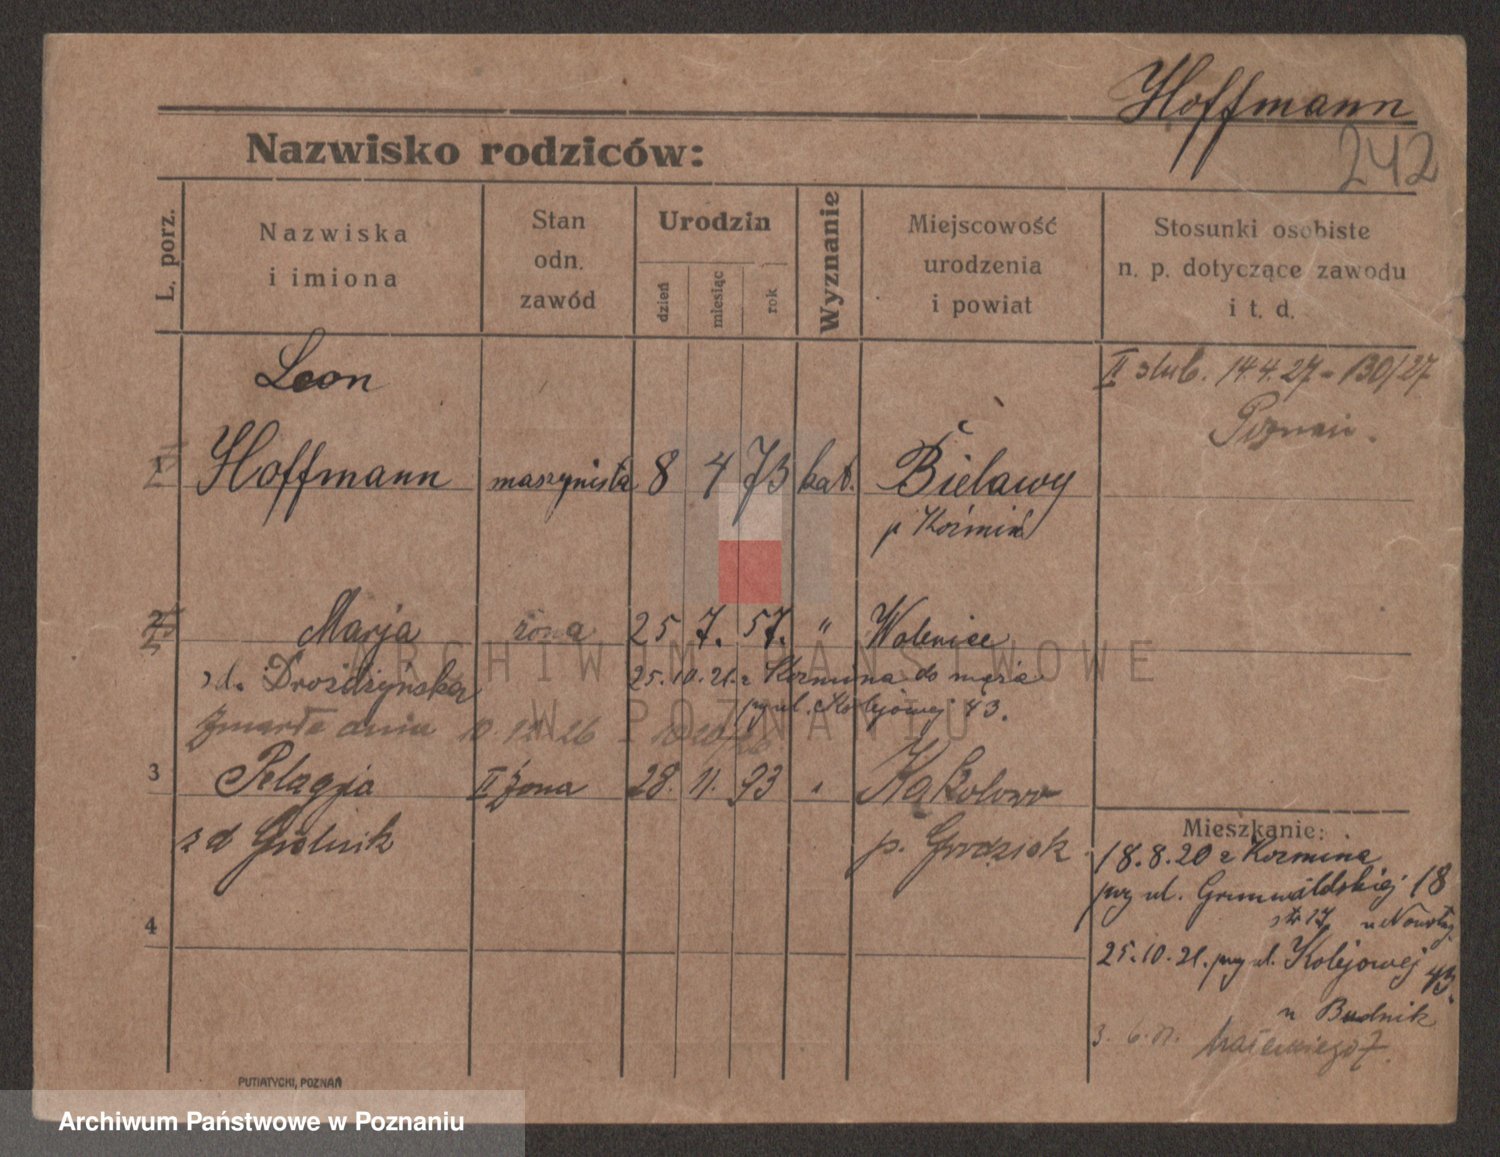 Hoffmann
242
Nazwisko rodziców:
L. porz.
Nazwiska
i imiona
Stan
odn.
zawód
Urodzin
dzień
miesiąc
rok
Wyznanie
Miejscowość
urodzenia
i powiat
Stosunki osobiste
n. p. dotyczące zawodu
i t. d.
1
Leon
Hoffmann
maszynista
8
4
73
kat.
Bielawy
p Koźmin
II slub. 14.4.27 - 130/27
Poznań.
2
Marja
żona
25
7.
57.
"
Wolenice
zd. Drożdżyńska
25.10.21. z Kozmina do męża
przy ul. Kolejowej 43.
Zmarła dnia 10.12.26
3
Pelagja
II żona
28.
11.
93
"
Kąkolewo
z d Grolnik
p. Grodzisk
4
Mieszkanie:
18.8.20 z Kozmina
przy ul. Grunwaldskiej 18
str 17 u Nowotny.
25.10.21. przy ul. Kolejowej 43.
u Budnik
3. 6.
PUTIATYCKI, POZNAŃ
ARCHIWUM PAŃSTWOWE
W POZNANIU
Archiwum Państwowe w Poznaniu